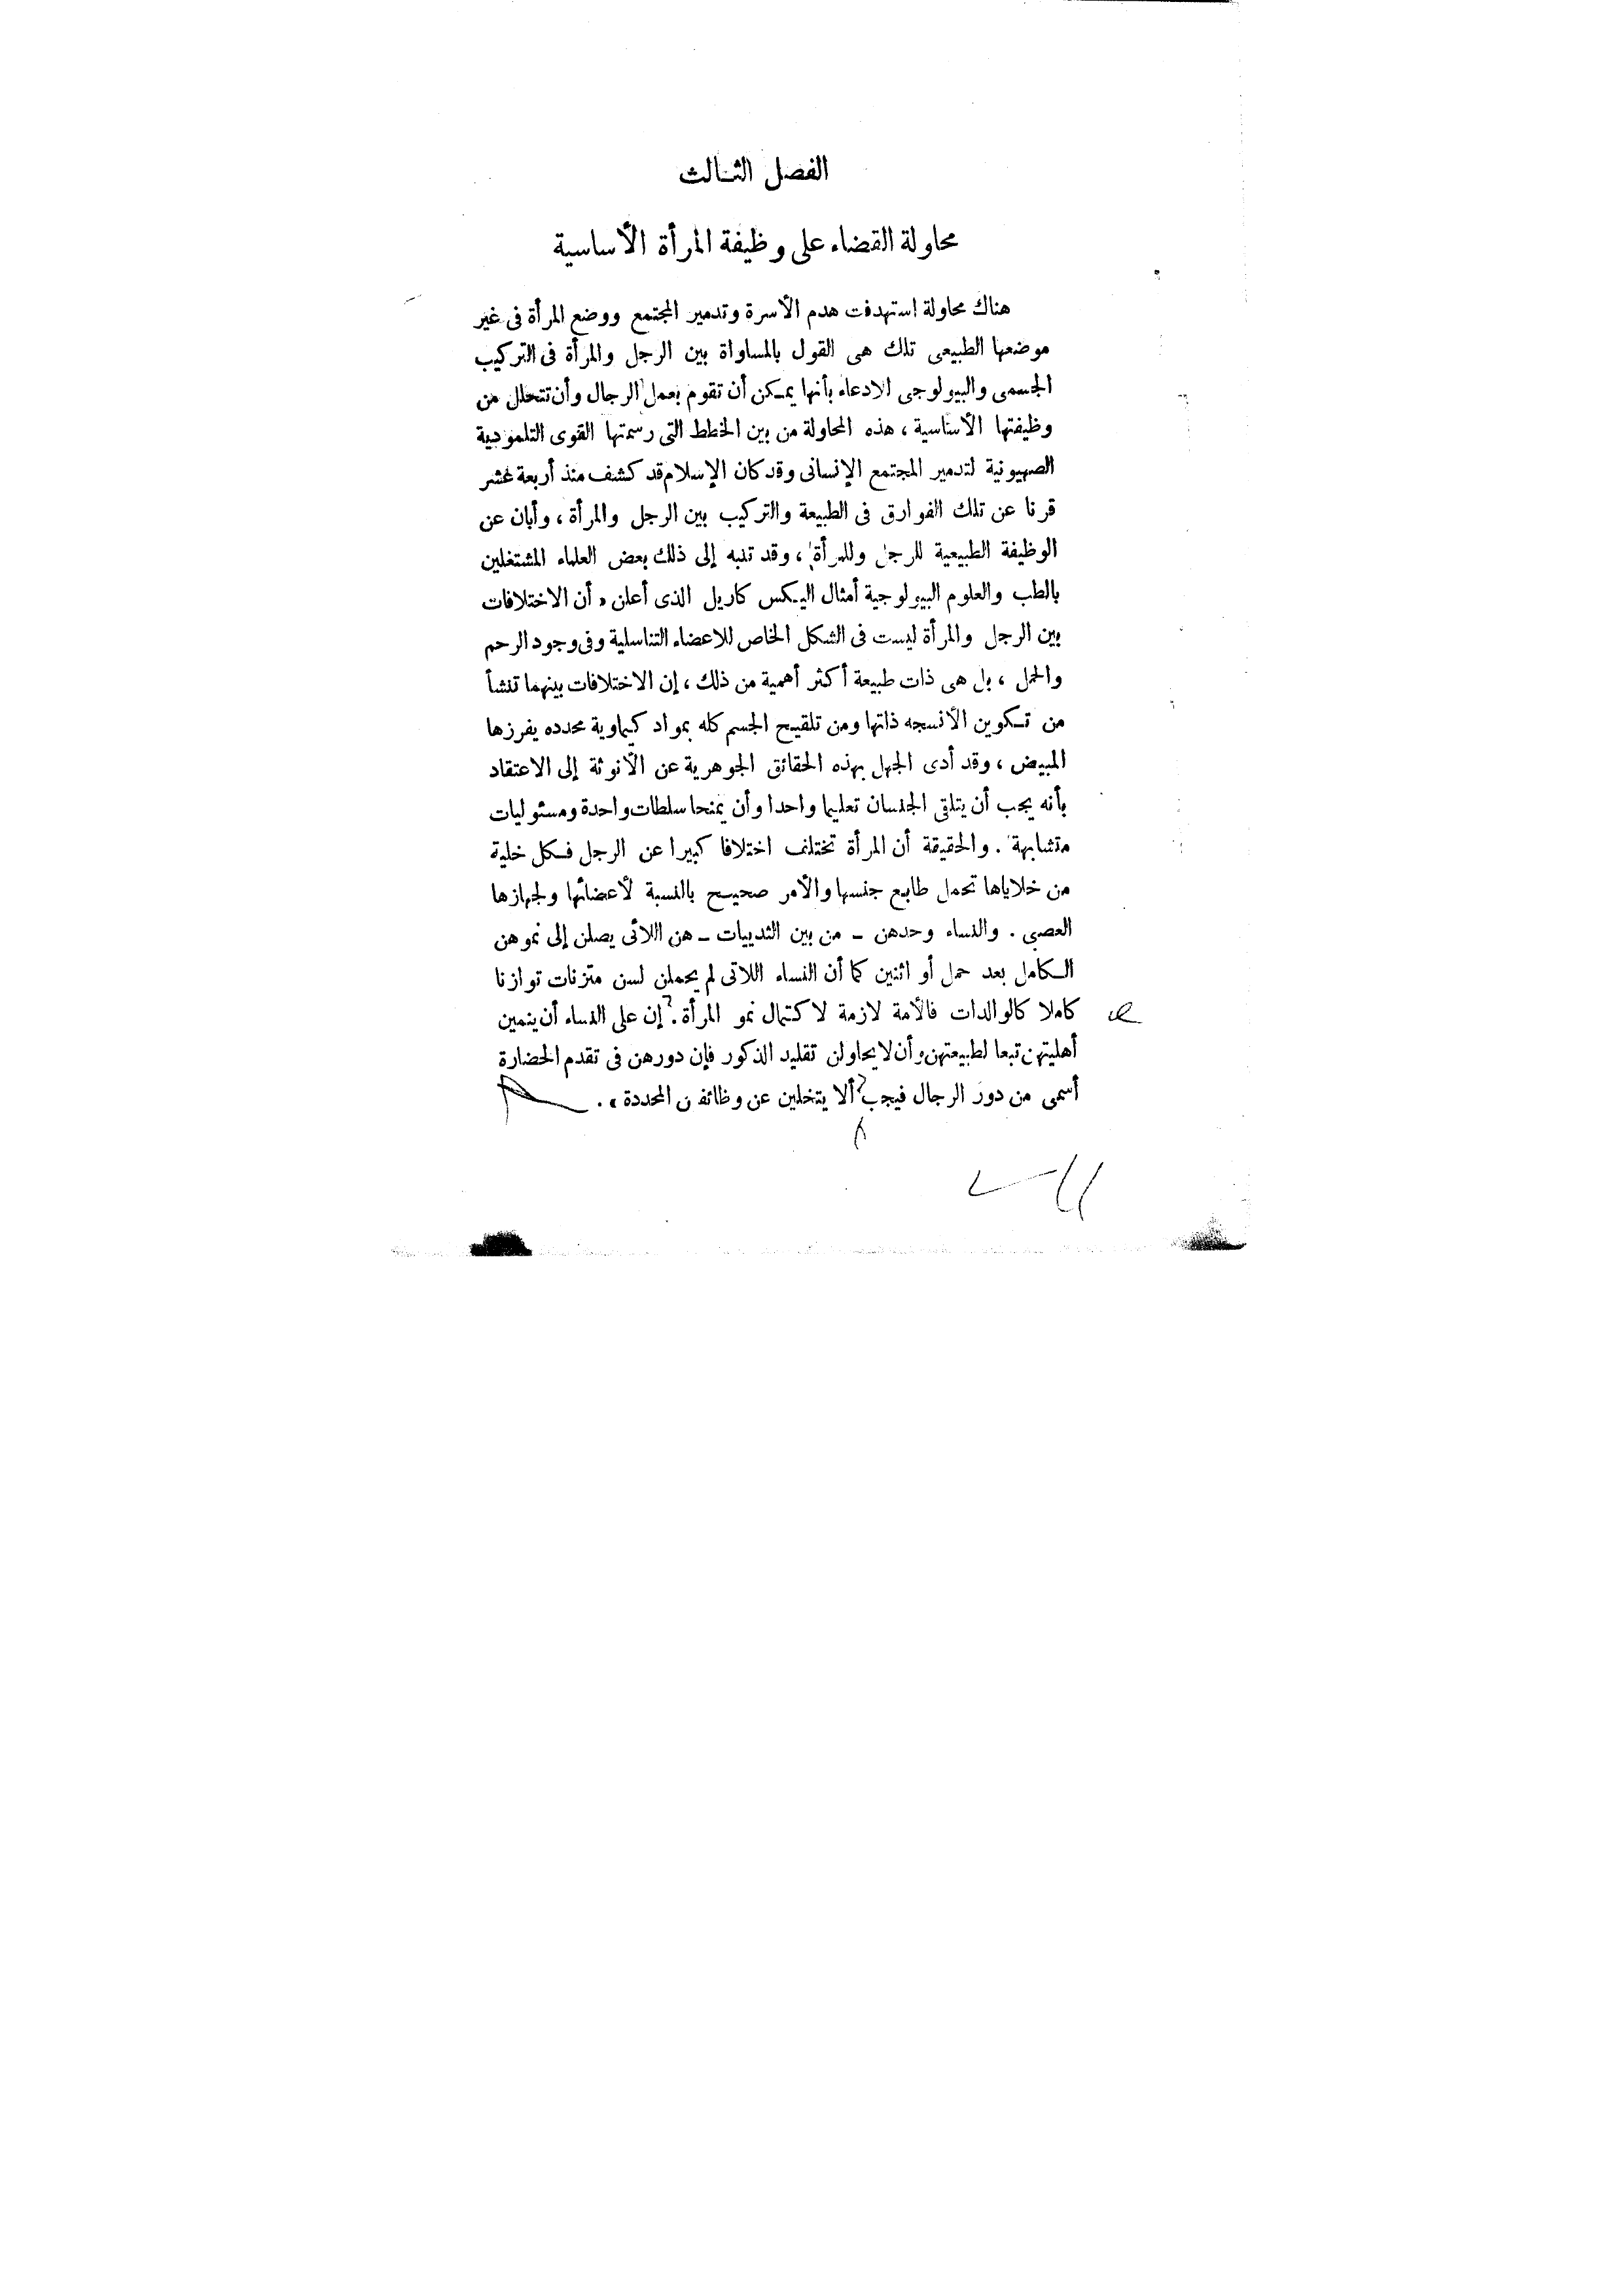 الفصل الثالث
محاولة القضاء على وظيفة المرأة الأساسية
هناك محاولة استهدفت هدم الأسرة وتدمير المجتمع ووضع المرأة فى غير
موضعها الطبيعى تلك هى القول بالمساواة بين الرجل والمرأة فى التركيب
الجسمى والبيولوجى الادعاء بأنها يمكن أن تقوم بعمل الرجال وأن تتحلل من
وظيفتها الأساسية ، هذه المحاولة من بين الخطط التى رسمتها القوى التلمودية
الصهيونية لتدمير المجتمع الإنسانى وقد كان الإسلام قد كشف منذ أربعة عشر
قرنا عن تلك الفوارق فى الطبيعة والتركيب بين الرجل والمرأة ، وأبان عن
الوظيفة الطبيعية للرجل وللمرأة ، وقد تنبه إلى ذلك بعض العلماء المشتغلين
بالطب والعلوم البيولوجية أمثال اليكس كاريل الذى أعلن « أن الاختلافات
بين الرجل والمرأة ليست فى الشكل الخاص للاعضاء التناسلية وفى وجود الرحم
والحمل ، بل هى ذات طبيعة أكثر أهمية من ذلك ، إن الاختلافات بينهما تنشأ
من تكوين الأنسجه ذاتها ومن تلقيح الجسم كله بمواد كيماوية محدده يفرزها
المبيض ، وقد أدى الجهل بهذه الحقائق الجوهرية عن الأنوثة إلى الاعتقاد
بأنه يجب أن يتلقى الجنسان تعليما واحدا وأن يمنحا سلطات واحدة ومسئوليات
متشابهة . والحقيقة أن المرأة تختلف اختلافا كبيرا عن الرجل فكل خلية
من خلاياها تحمل طابع جنسها والأمر صحيح بالنسبة لأعضائها ولجهازها
العصبى . والنساء وحدهن – من بين الثدييات – هن اللائى يصلن إلى نموهن
الكامل بعد حمل أو اثنين كما أن النساء اللاتى لم يحملن لسن متزنات توازنا
كاملا كالوالدات فالأمة لازمة لاكتمال نمو المرأة . إن على النساء أن ينمين
أهليتهن تبعا لطبيعتهن وأن لا يحاولن تقليد الذكور فإن دورهن فى تقدم الحضارة
أسمى من دور الرجال فيجب ألا يتخلين عن وظائف ن المحددة » .